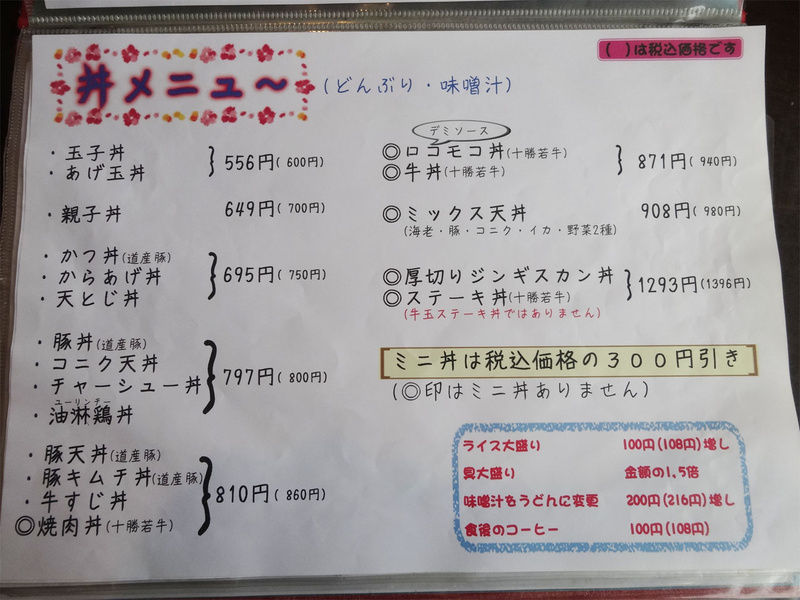 ( )は税込価格です
丼メニュ〜 (どんぶり・味噌汁)
・玉子丼
・あげ玉丼
556円(600円)
・親子丼 649円(700円)
・かつ丼(道産豚)
・からあげ丼
・天とじ丼
695円(750円)
・豚丼(道産豚)
・コニク天丼
・チャーシュー丼
ユーリンチー
・油淋鶏丼
797円(800円)
・豚天丼(道産豚)
・豚キムチ丼(道産豚)
・牛すじ丼
◎焼肉丼(十勝若牛)
810円(860円)
デミソース
◎ロコモコ丼(十勝若牛)
◎牛丼(十勝若牛)
871円(940円)
◎ミックス天丼 908円(980円)
(海老・豚・コニク・イカ・野菜2種)
◎厚切りジンギスカン丼
◎ステーキ丼(十勝若牛)
1293円(1396円)
(牛玉ステーキ丼ではありません)
ミニ丼は税込価格の300円引き
(◎印はミニ丼ありません)
ライス大盛り 100円(108円)増し
具大盛り 金額の1,5倍
味噌汁をうどんに変更 200円(216円)増し
食後のコーヒー 100円(108円)